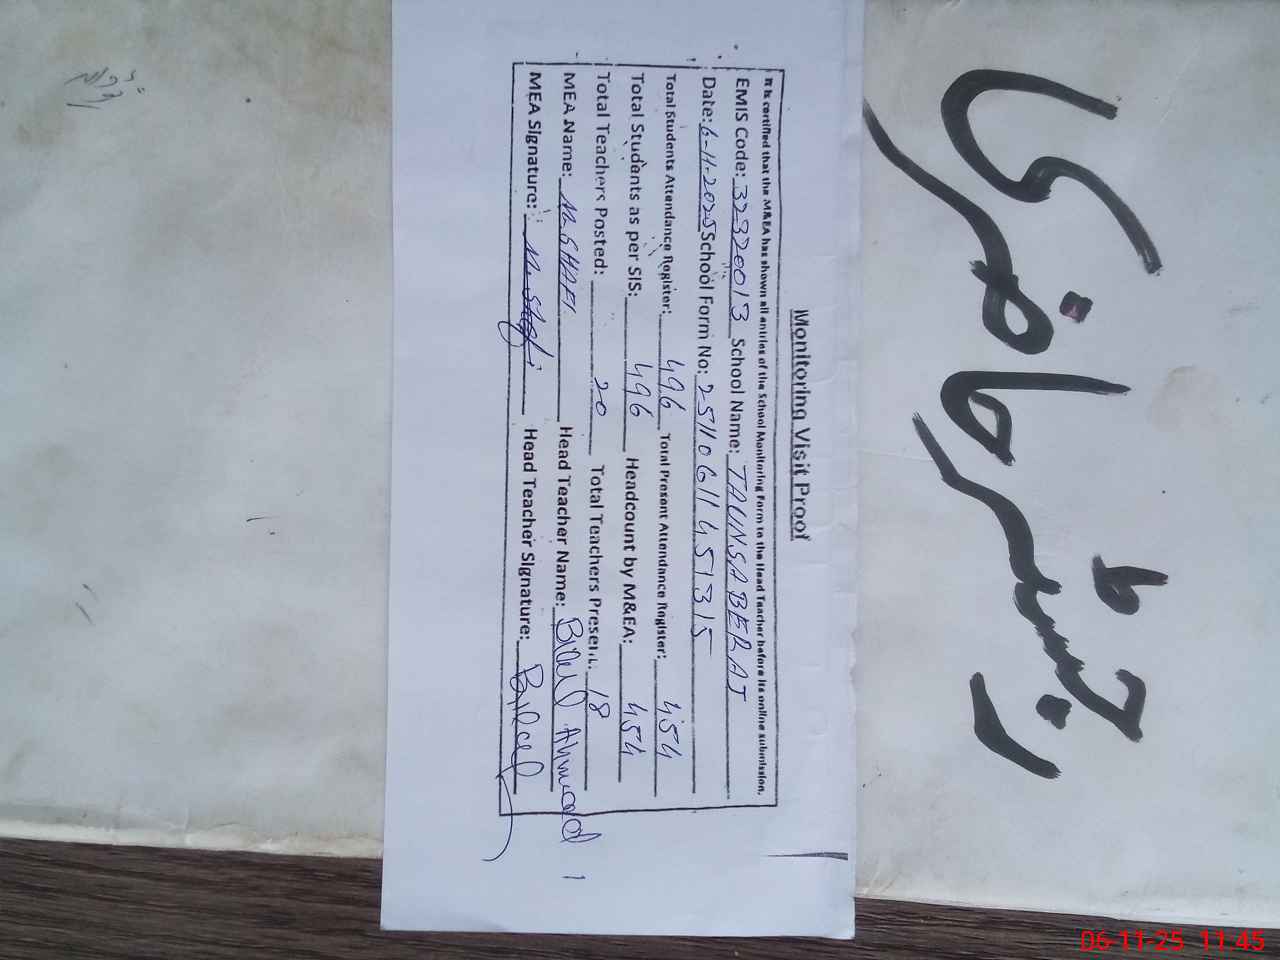 Monitoring Visit Proof
It is certified that the M&EA has shown all entries of the School Monitoring Form to the Head Teacher before its online submission.
EMIS Code: 32320013 School Name: TAUNSA BERAJ
Date: 6-11-2025 School Form No: 25110611451315
Total Students Attendance Register: 496 Total Present Attendance Register: 454
Total Students as per SIS: 496 Headcount by M&EA: 454
Total Teachers Posted: 20 Total Teachers Present: 18
MEA Name: M. SHAFI Head Teacher Name: Bilal Ahmad
MEA Signature: M. Shafi Head Teacher Signature: Bilal
رجسٹر حاضری
06-11-25 11:45